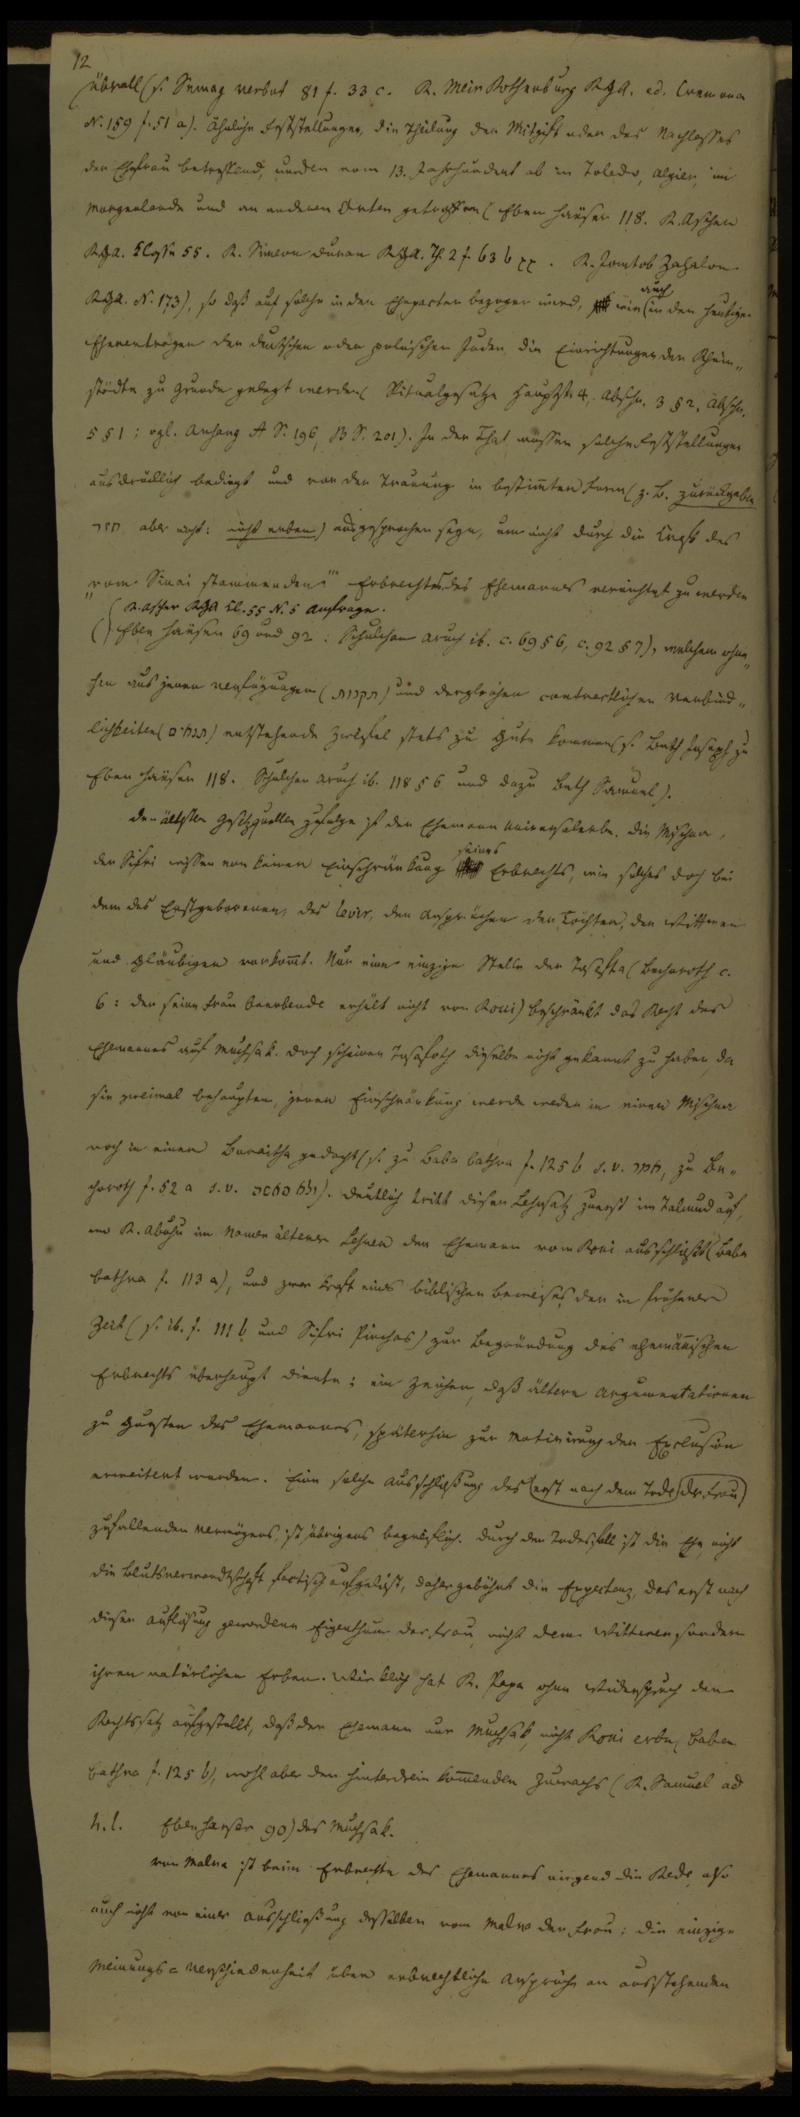 12
überall (s. Semag verbot 81 f. 33 c. R. Meir Rothenburg RGA. ed. Cremona
N. 159 f. 51 a). Ähnliche Feststellungen, die Theilung der Mitgift oder des Nachlasses
der Ehefrau betreffend, wurden vom 13. Jahrhundert ab in Toledo, Algier, im
Morgenlande und an anderen Orten getroffen (Eben haëser 118. R. Ascher
RGA. Classe 55. R. Simeon Duran RGA. Th. 2 f. 63 b. R. Jomtob Zahalon
RGA. N. 173), so daß auf solche in den Ehepacten bezogen wird, wie auch (in den heutigen
Eheverträgen der deutschen oder polnischen Juden die Einrichtungen der Rhein-
städte zu Grunde gelegt werden (Ritualgesetze Hauptst. 4, Abschn. 3 § 2, Abschn.
5 § 1; vgl. Anhang A S. 196, B S. 201). In der That müssen solche Feststellungen
ausdrücklich bedingt und vor der Trauung in bestimmter Form (z. B. zurückgeben
חזר aber nicht: nicht erben) ausgesprochen seyn, um nicht durch die Kraft des
„vom Sinai stammenden“ Erbrechtes des Ehemannes vernichtet zu werden
(R. Ascher RGA Cl. 55 N. 5 Anfrage.
Eben haëser 69 und 92: Schulchan aruch ib. c. 69 § 6, c. 92 § 7), welchem ohne-
hin aus jenen Verfügungen (תקנות) und dergleichen contractlichen Verbind-
lichkeiten (תנאים) entstehende Zweifel stets zu Gute kommen (s. Beth Joseph zu
Eben haëser 118. Schulchan aruch ib. 118 § 6 und dazu Beth Samuel).
Den ältesten Gesetzquellen zufolge ist der Ehemann Universalerbe. Die Mischna,
der Sifri wissen von keiner Einschränkung seines Erbrechts, wie solches doch bei
dem des Erstgeborenen, des Levir, den Ansprüchen der Töchter, der Wittwen
und Gläubiger vorkomt. Nur eine einzige Stelle der Tosefta (Bechoroth c.
6: der seine Frau Beerbende erhält nicht von Roui) beschränkt das Recht des
Ehemannes auf Muchsak. Doch scheinen Tosafoth dieselbe nicht gekannt zu haben, da
sie zweimal behaupten, jener Einschränkung werde weder in einer Mischna
noch in einer Boraitha gedacht (s. zu Baba bathra f. 125 b s. v. , zu Be-
choroth f. 52 a s. v. ). Deutlich tritt dieser Lehrsatz zuerst im Talmud auf,
wo R. Abuhu im Namen älterer Lehrer den Ehemann vom Roui ausschließt (Baba
bathra f. 113 a), und zwar kraft eines biblischen Beweises, der in früherer
Zeit (s. ib. f. 111 b und Sifri Pinchas) zur Begründung des ehemännischen
Erbrechts überhaupt diente: ein Zeichen, daß ältere Argumentationen
zu Gunsten des Ehemannes, späterhin zur Motivirung der Exclusion
erweitert wurden. Eine solche Ausschließung des (erst nach dem Tode) der Frau)
zufallenden Vermögens, ist übrigens begreiflich. Durch den Todesfall ist die Ehe, nicht
die Blutsverwandtschaft factisch aufgelöst, daher gebührt die Expectanz, das erst nach
dieser Auflösung gewordene Eigenthum der Frau, nicht dem Wittwer, sondern
ihren natürlichen Erben. Wirklich hat R. Papa ohne Widerspruch den
Rechtssatz aufgestellt, daß der Ehemann nur Muchsak, nicht Roui erbe (Baba
bathra f. 125 b), wohl aber den hinterdrein kommenden Zuwachs (R. Samuel ad
h. l. Eben haeser 90) des Muchsak.
Von Malwe ist beim Erbrechte des Ehemannes nirgend die Rede, also
auch nicht von einer Ausschließung desselben vom Malwe der Frau; die einzige
Meinungs-Verschiedenheit über erbrechtliche Ansprüche an ausstehenden